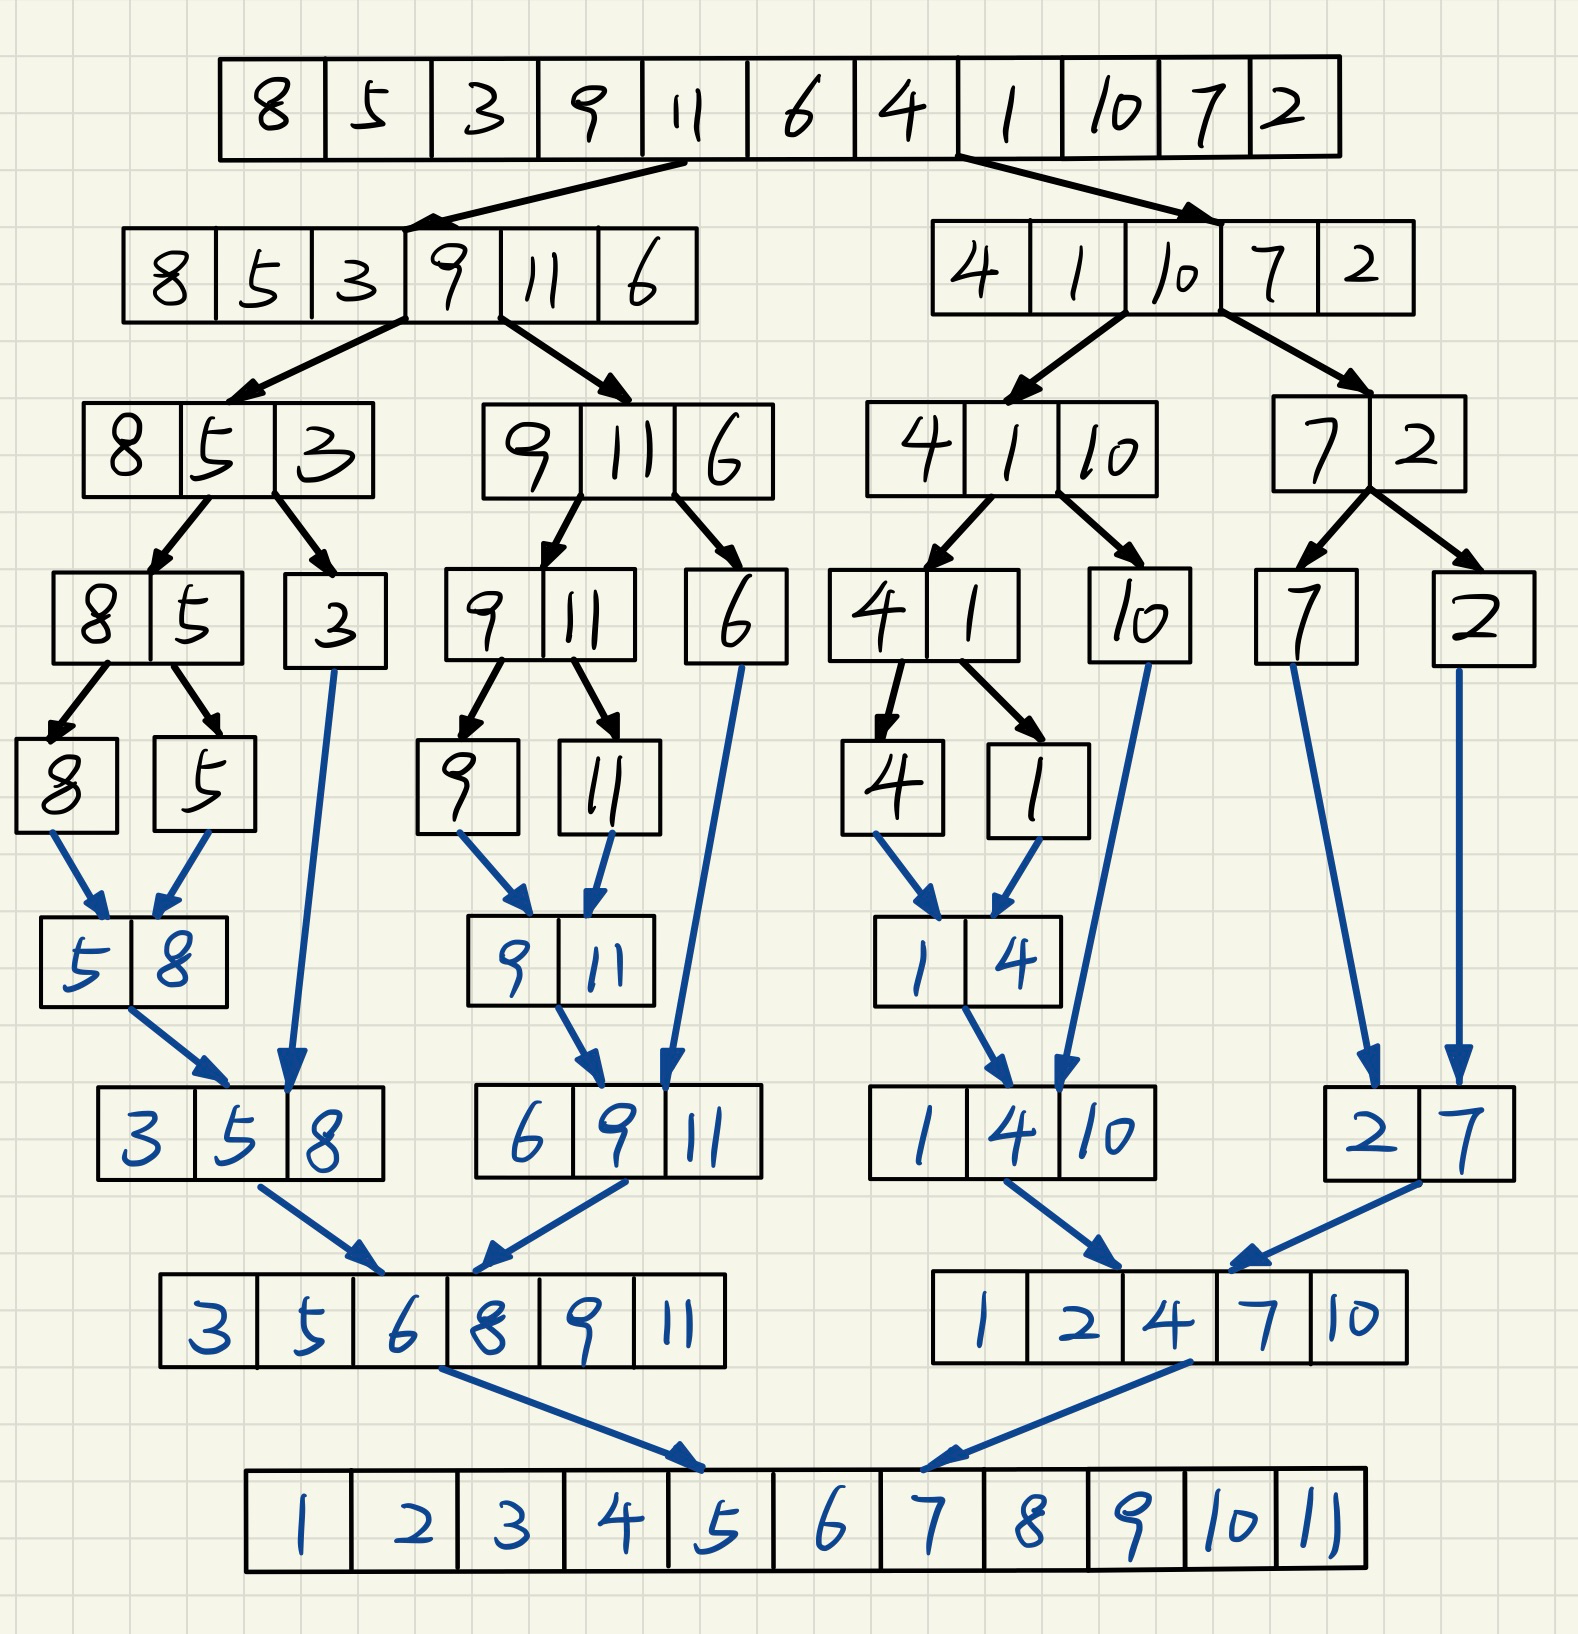 8 5 3 9 11 6 4 1 10 7 2
8 5 3 9 11 6 4 1 10 7 2
8 5 3 9 11 6 4 1 10 7 2
8 5 3 9 11 6 4 1 10 7 2
8 5 9 11 4 1
5 8 9 11 1 4
3 5 8 6 9 11 1 4 10 2 7
3 5 6 8 9 11 1 2 4 7 10
1 2 3 4 5 6 7 8 9 10 11